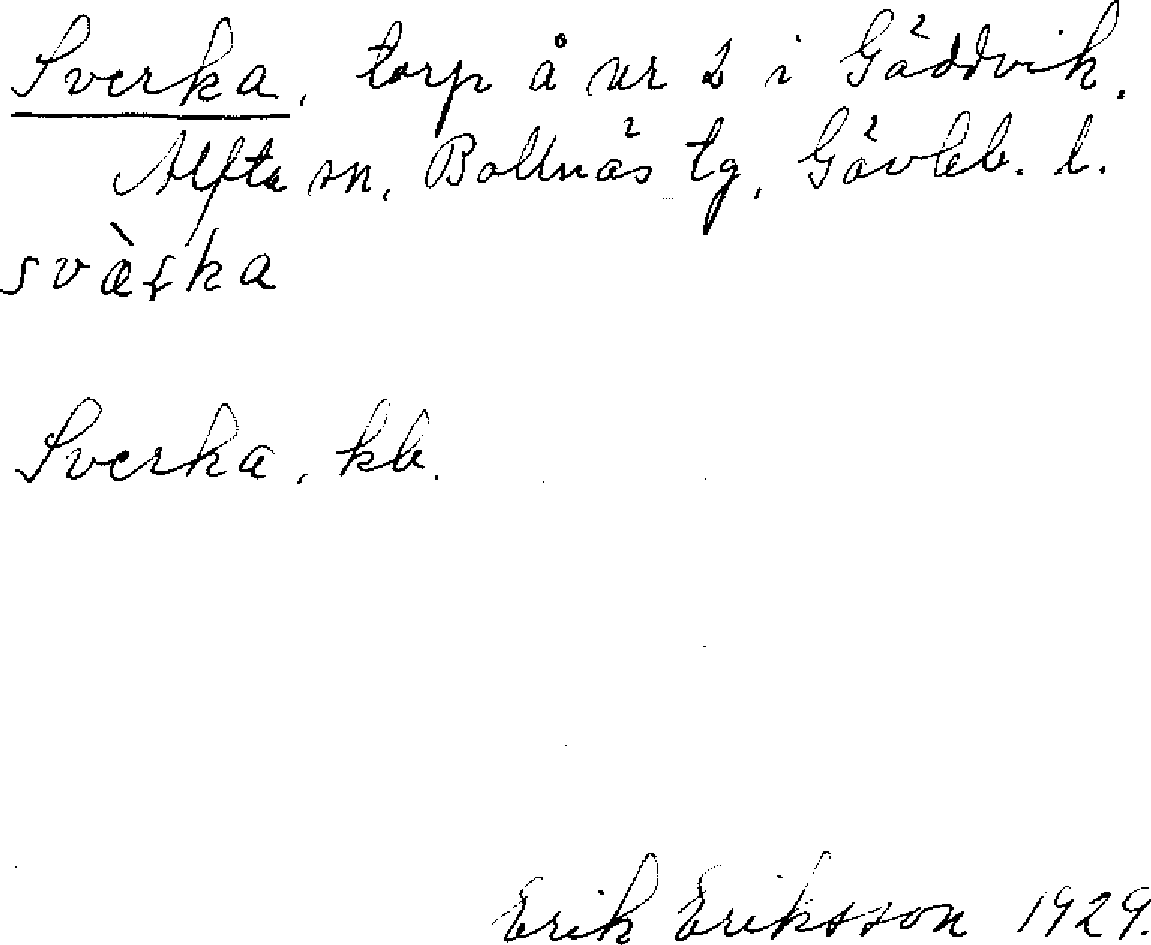 Sverka, torp å nr 2 i Gäddvik.
Alfta sn, Bollnäs tg, Gävleb. l.
svæ̀rka
Sverka, kb.
Erik Eriksson 1929.